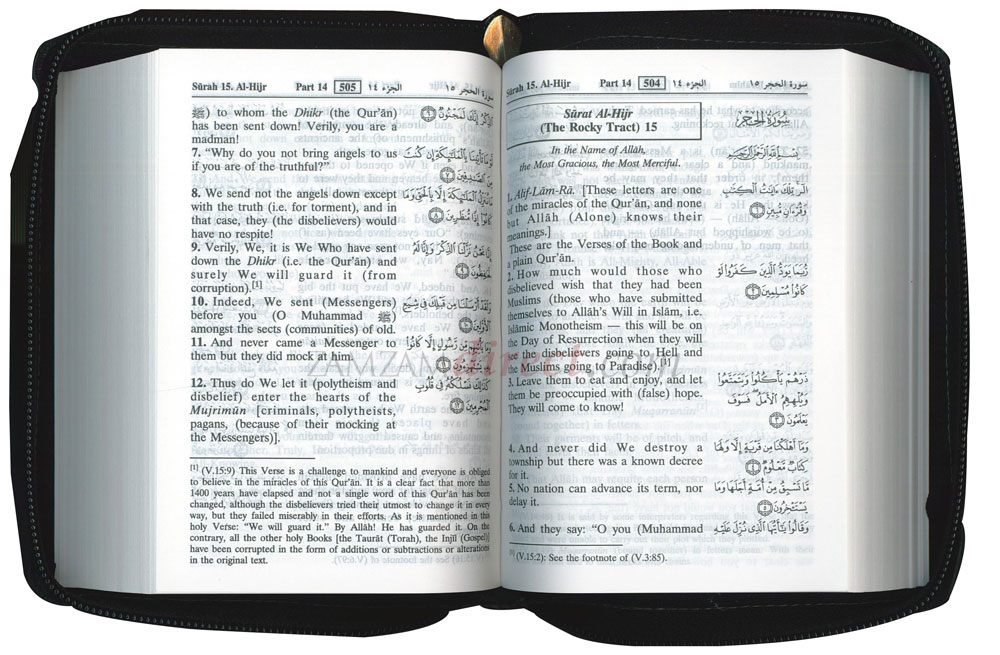 Sūrah 15. Al-Hijr Part 14 504 الجزء ١٤ سورة الحجر ١٥
Sûrat Al-Hijr
(The Rocky Tract) 15
سُورَةُ الحِجْرِ
In the Name of Allâh,
the Most Gracious, the Most Merciful.
بِسْمِ اللَّهِ الرَّحْمَٰنِ الرَّحِيمِ
1. Alif-Lâm-Râ. [These letters are one
of the miracles of the Qur'ân, and none
but Allâh (Alone) knows their
meanings.]
These are the Verses of the Book and
a plain Qur'ân.
2. How much would those who
disbelieved wish that they had been
Muslims (those who have submitted
themselves to Allâh's Will in Islâm, i.e.
Islâmic Monotheism — this will be on
the Day of Resurrection when they will
see the disbelievers going to Hell and
the Muslims going to Paradise).[1]
3. Leave them to eat and enjoy, and let
them be preoccupied with (false) hope.
They will come to know!
4. And never did We destroy a
township but there was a known decree
for it.
5. No nation can advance its term, nor
delay it.
6. And they say: "O you (Muhammad
الٓر تِلْكَ ءَايَٰتُ الْكِتَٰبِ
وَقُرْءَانٍ مُّبِينٍ ١
رُّبَمَا يَوَدُّ الَّذِينَ كَفَرُوا۟ لَوْ
كَانُوا۟ مُسْلِمِينَ ٢
ذَرْهُمْ يَأْكُلُوا۟ وَيَتَمَتَّعُوا۟
وَيُلْهِهِمُ الْأَمَلُ فَسَوْفَ
يَعْلَمُونَ ٣
وَمَآ أَهْلَكْنَا مِن قَرْيَةٍ إِلَّا وَلَهَا
كِتَابٌ مَّعْلُومٌ ٤
مَّا تَسْبِقُ مِنْ أُمَّةٍ أَجَلَهَا وَمَا
يَسْتَـْٔخِرُونَ ٥
وَقَالُوا۟ يَٰٓأَيُّهَا الَّذِى نُزِّلَ عَلَيْهِ
[1] (V.15:2): See the footnote of (V.3:85).
Sûrah 15. Al-Hijr Part 14 505 الجزء ١٤ سورة الحجر ١٥
ﷺ) to whom the Dhikr (the Qur'ân)
has been sent down! Verily, you are a
madman!
7. "Why do you not bring angels to us
if you are of the truthful?"
8. We send not the angels down except
with the truth (i.e. for torment), and in
that case, they (the disbelievers) would
have no respite!
9. Verily, We, it is We Who have sent
down the Dhikr (i.e. the Qur'ân) and
surely We will guard it (from
corruption).[1]
10. Indeed, We sent (Messengers)
before you (O Muhammad ﷺ)
amongst the sects (communities) of old.
11. And never came a Messenger to
them but they did mock at him.
12. Thus do We let it (polytheism and
disbelief) enter the hearts of the
Mujrimûn [criminals, polytheists,
pagans, (because of their mocking at
the Messengers)].
الذِّكْرُ إِنَّكَ لَمَجْنُونٌ ٦
لَّوْ مَا تَأْتِينَا بِالْمَلَٰٓئِكَةِ إِن كُنتَ
مِنَ الصَّٰدِقِينَ ٧
مَا نُنَزِّلُ الْمَلَٰٓئِكَةَ إِلَّا بِالْحَقِّ وَمَا
كَانُوٓا۟ إِذًا مُّنظَرِينَ ٨
إِنَّا نَحْنُ نَزَّلْنَا الذِّكْرَ وَإِنَّا لَهُۥ
لَحَٰفِظُونَ ٩
وَلَقَدْ أَرْسَلْنَا مِن قَبْلِكَ فِى شِيَعِ
الْأَوَّلِينَ ١٠
وَمَا يَأْتِيهِم مِّن رَّسُولٍ إِلَّا كَانُوا۟
كَذَٰلِكَ نَسْلُكُهُۥ فِى قُلُوبِ
الْمُجْرِمِينَ ١٢
[1] (V.15:9) This Verse is a challenge to mankind and everyone is obliged
to believe in the miracles of this Qur'ân. It is a clear fact that more than
1400 years have elapsed and not a single word of this Qur'ân has been
changed, although the disbelievers tried their utmost to change it in every
way, but they failed miserably in their efforts. As it is mentioned in this
holy Verse: "We will guard it." By Allâh! He has guarded it. On the
contrary, all the other holy Books [the Taurât (Torah), the Injîl (Gospel)]
have been corrupted in the form of additions or subtractions or alterations
in the original text.
ZAMZAMdirect.com